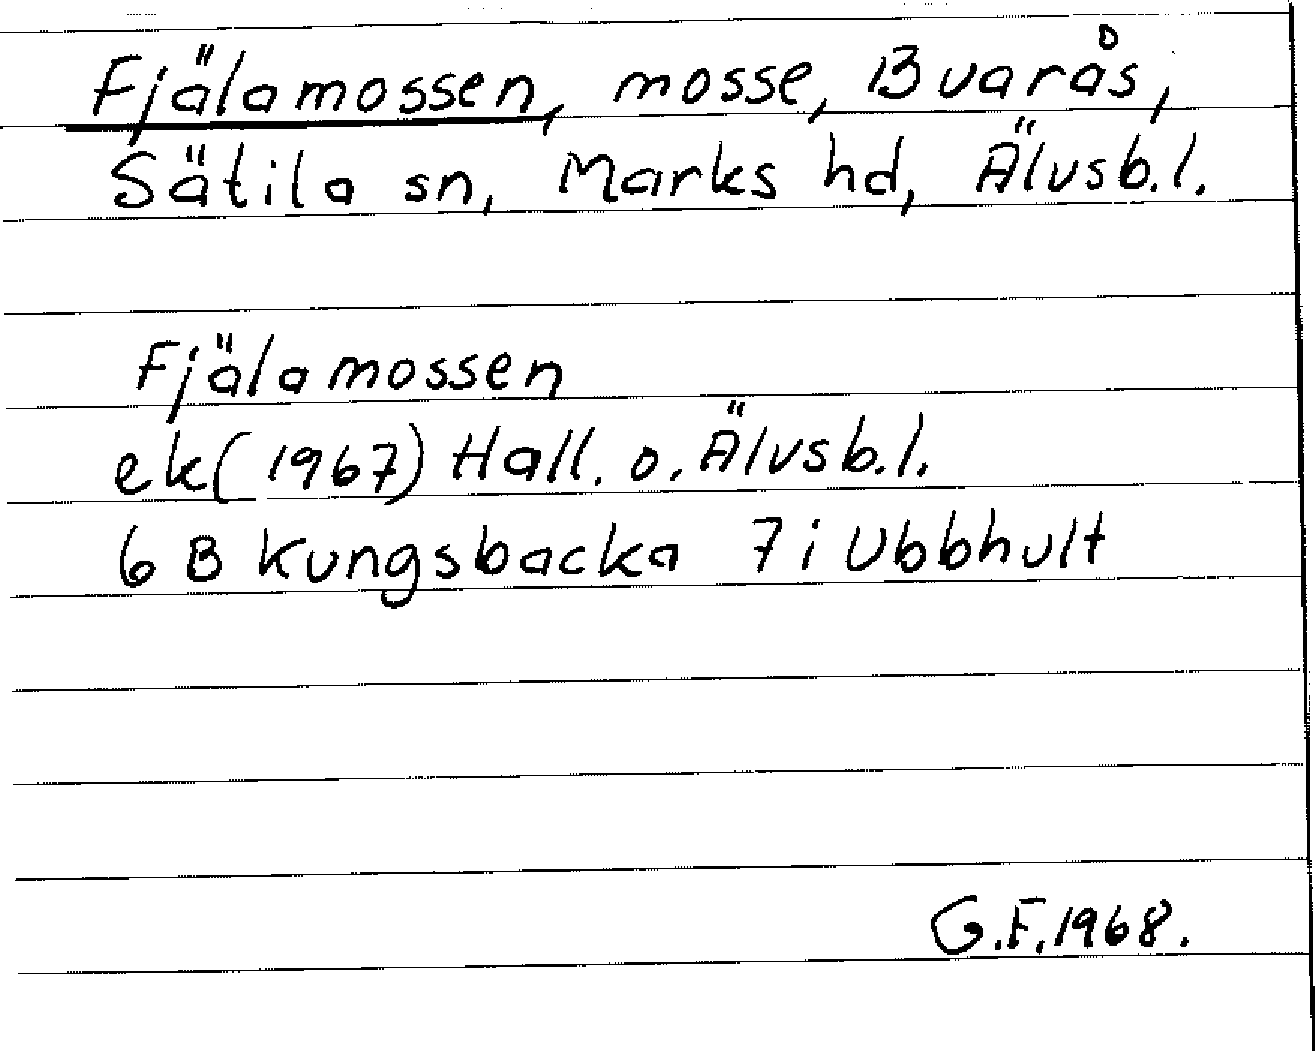 Fjälamossen, mosse, Buarås,
Sätila sn, Marks hd, Älvsb.l.
Fjälamossen
ek(1967) Hall. o. Älvsb.l.
6 B Kungsbacka 7 i Ubbhult
G.F. 1968.